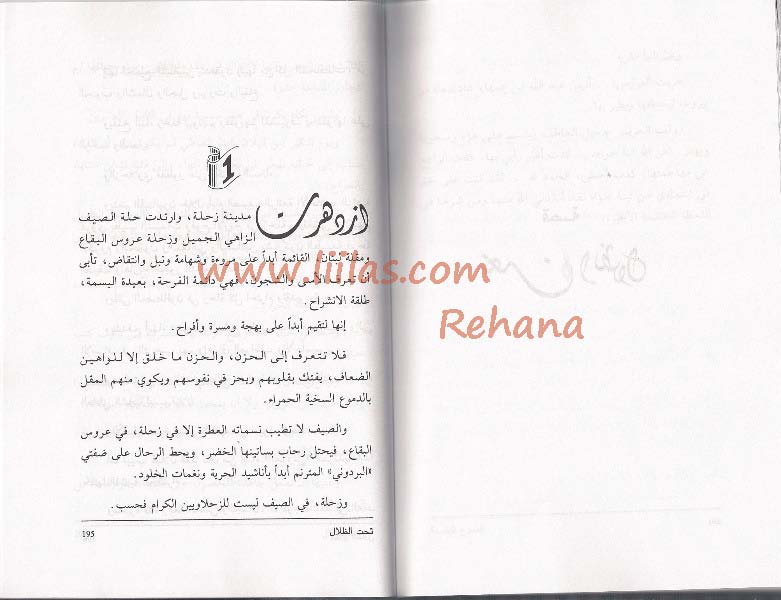 1
ازدهرت مدينة زحلة، وارتدت حلة الصيف
الزاهي الجميل وزحلة عروس البقاع
ومقلة لبنان، القائمة أبداً على مروءة وشهامة ونبل وانتفاض، تأبى
أن تعرف الأسى والشجون، فهي دائمة الفرحة، بعيدة البسمة،
طلقة الانشراح.
إنها لتقيم أبداً على بهجة ومسرة وأفراح.
فلا تتعرف إلى الحزن، والحزن ما خلق إلا للواهين
الضعاف، يفتك بقلوبهم ويحز في نفوسهم ويكوي منهم المقل
بالدموع السخية الحمراء.
والصيف لا تطيب نسماته العطرة إلا في زحلة، في عروس
البقاع، فيحتل رحاب بساتينها الخضر، ويحط الرحال على ضفتي
«البردوني» المترنم أبداً بأناشيد الحرية ونغمات الخلود.
وزحلة، في الصيف ليست للزحلاويين الكرام فحسب.
تحت الظلال
195
www.liilas.com
Rehana